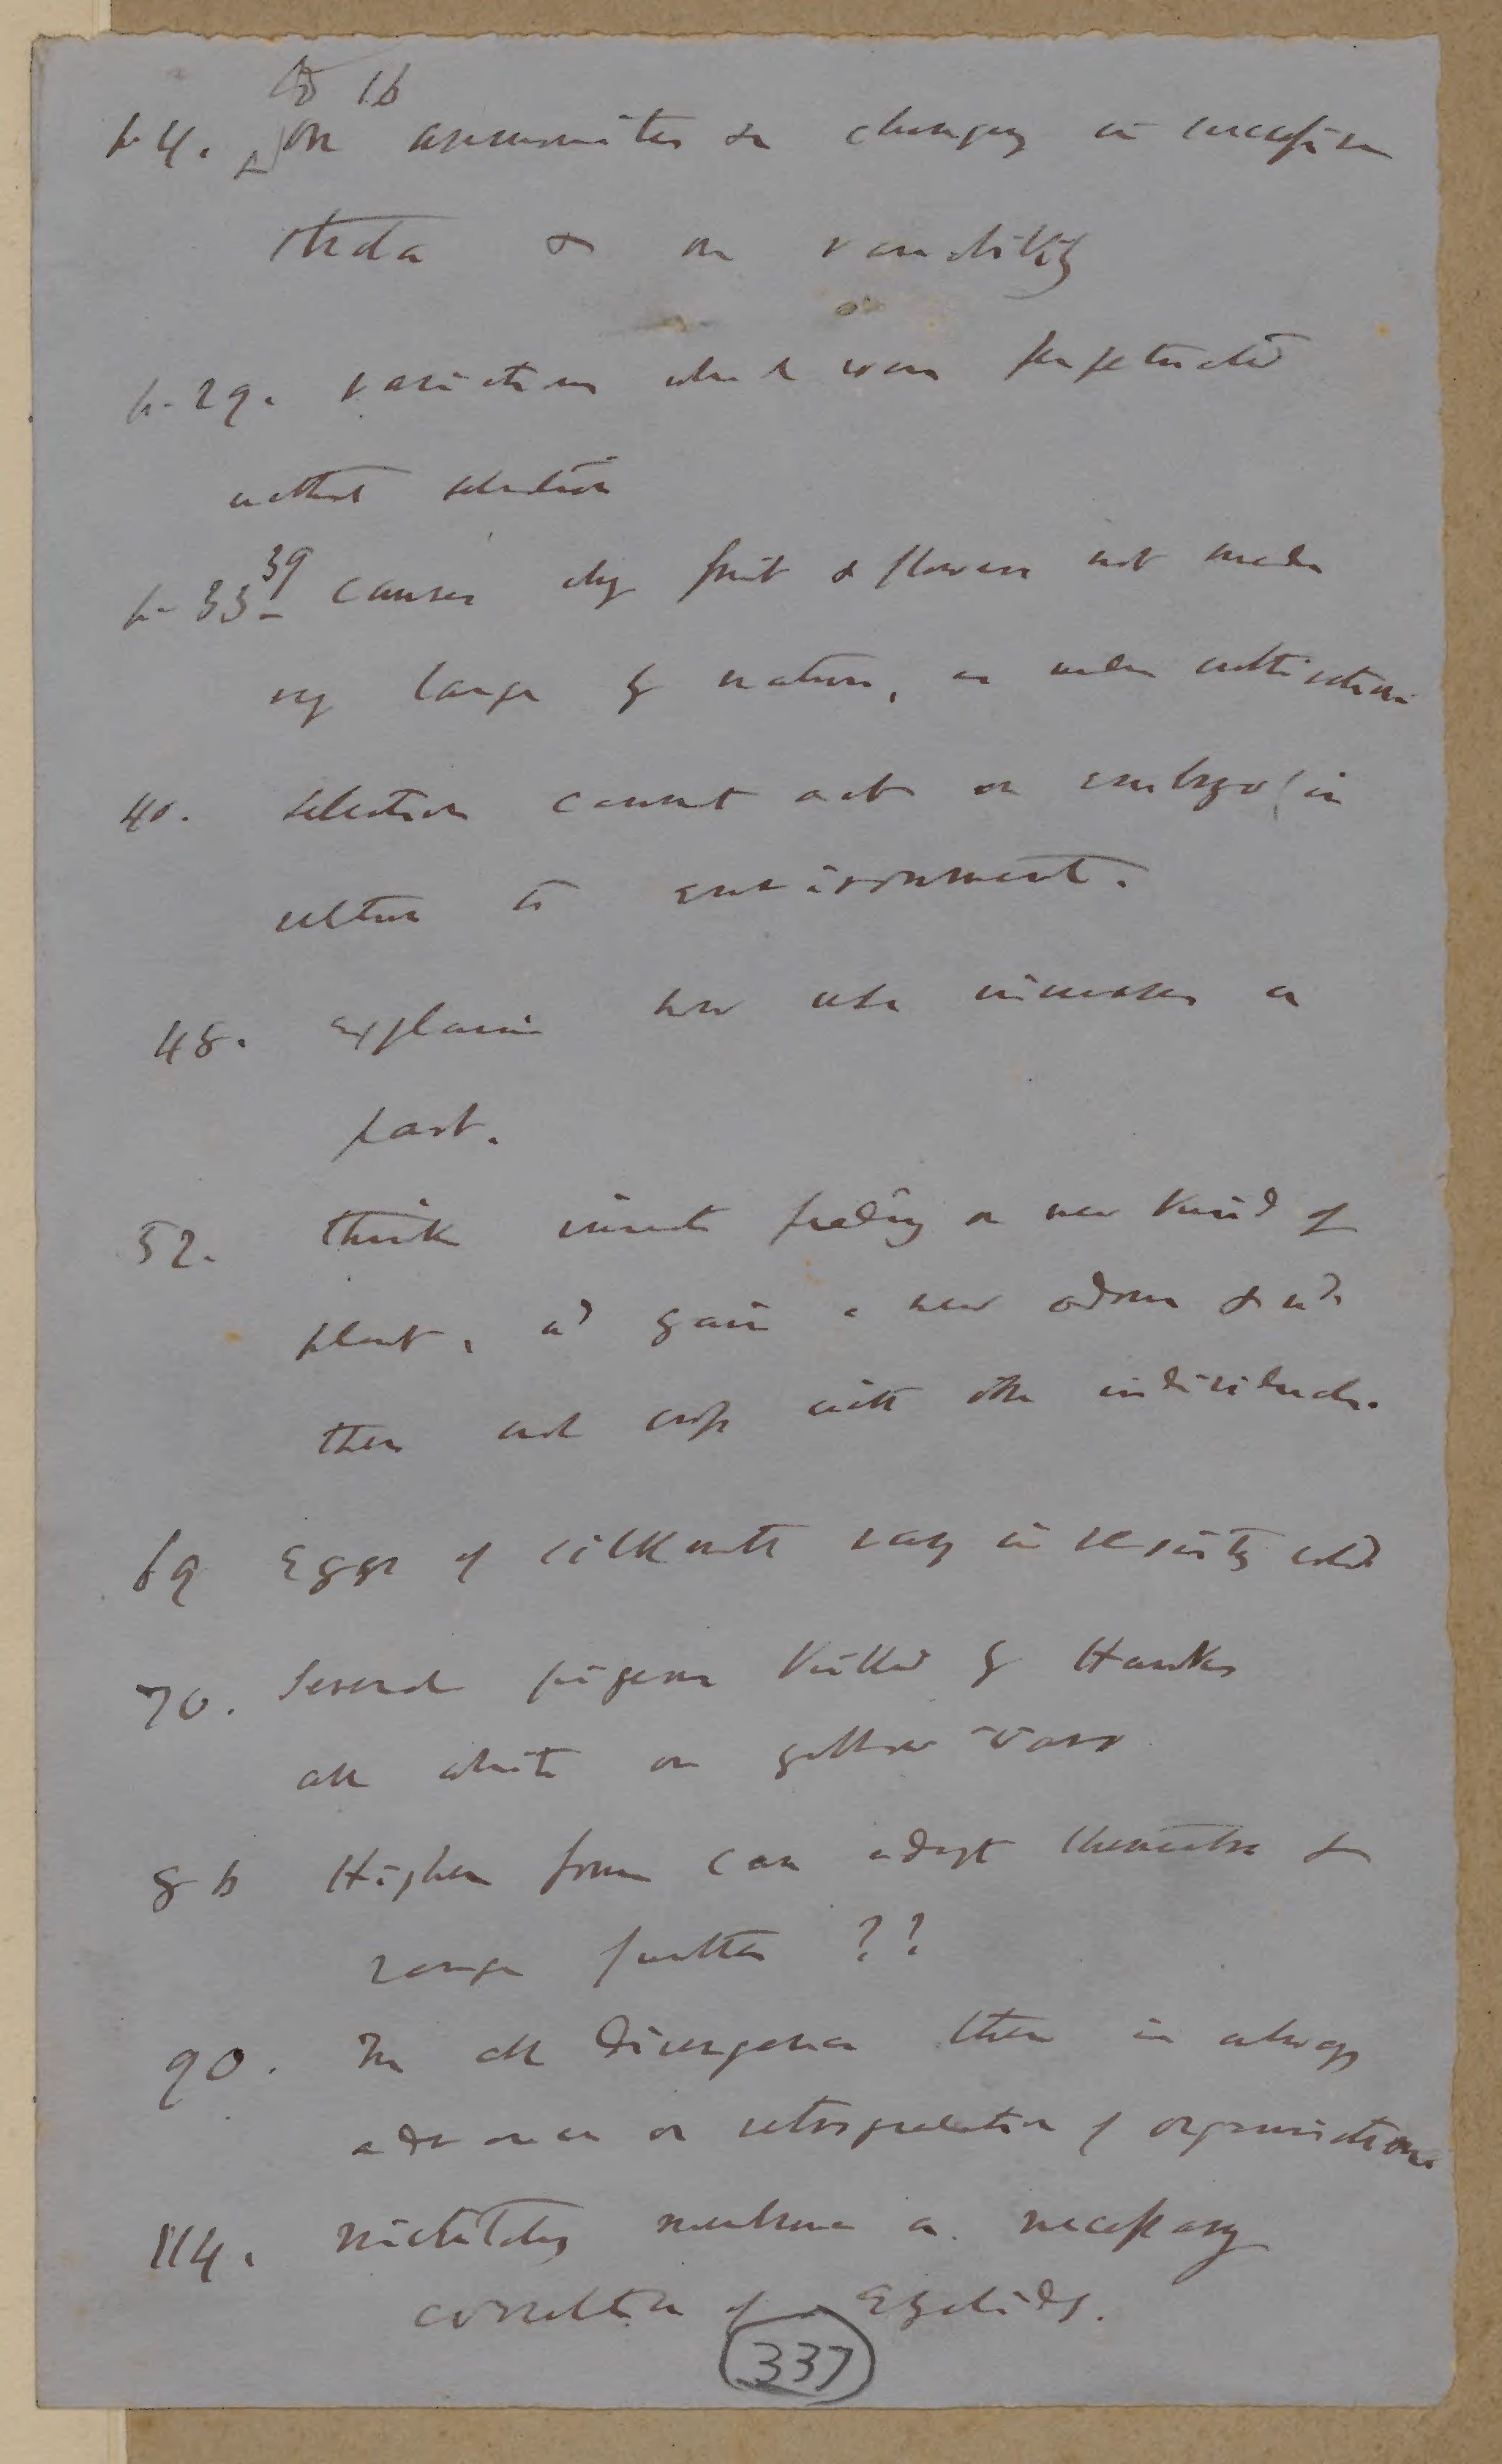 to 16
p. 4. on ammonites &c changing in succession
strata & on variability
p. 29. variations which were perpetuated
without selection
39
p. 33- causes why fruit & flowers not made
very large by nature, as under cultivation
40. selection cannot act on embryo (in
relation to environment.
48. explain how use increases a
part.
52. think insects feeding on new kind of
plant, wd gain a new odour & wd
then not cross with other individuals.
69 Eggs of silk moths vary in density
70. Several pigeons killed by Hawks
all white or yellow
86 Higher forms can adapt themselves &
range further ??
90. In all Divergence there is always
advance or retrogradation of organisation
114. nictitating membrane a necessary
correlation of Eyelids.
337